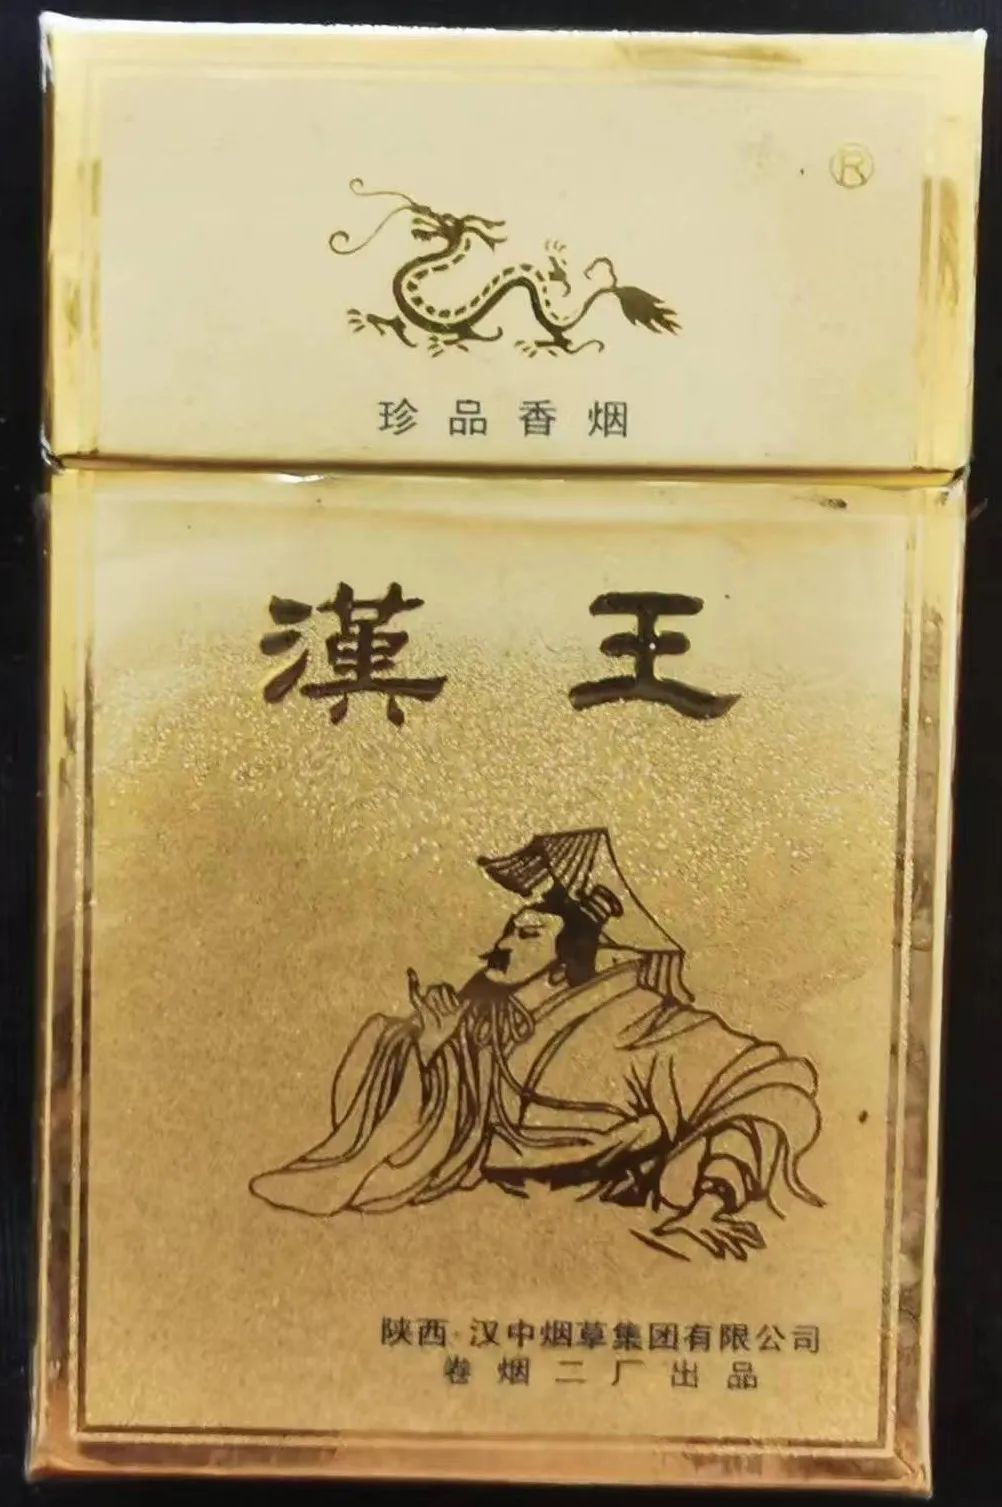 ®
珍品香烟
漢王
陕西·汉中烟草集团有限公司
卷烟二厂出品